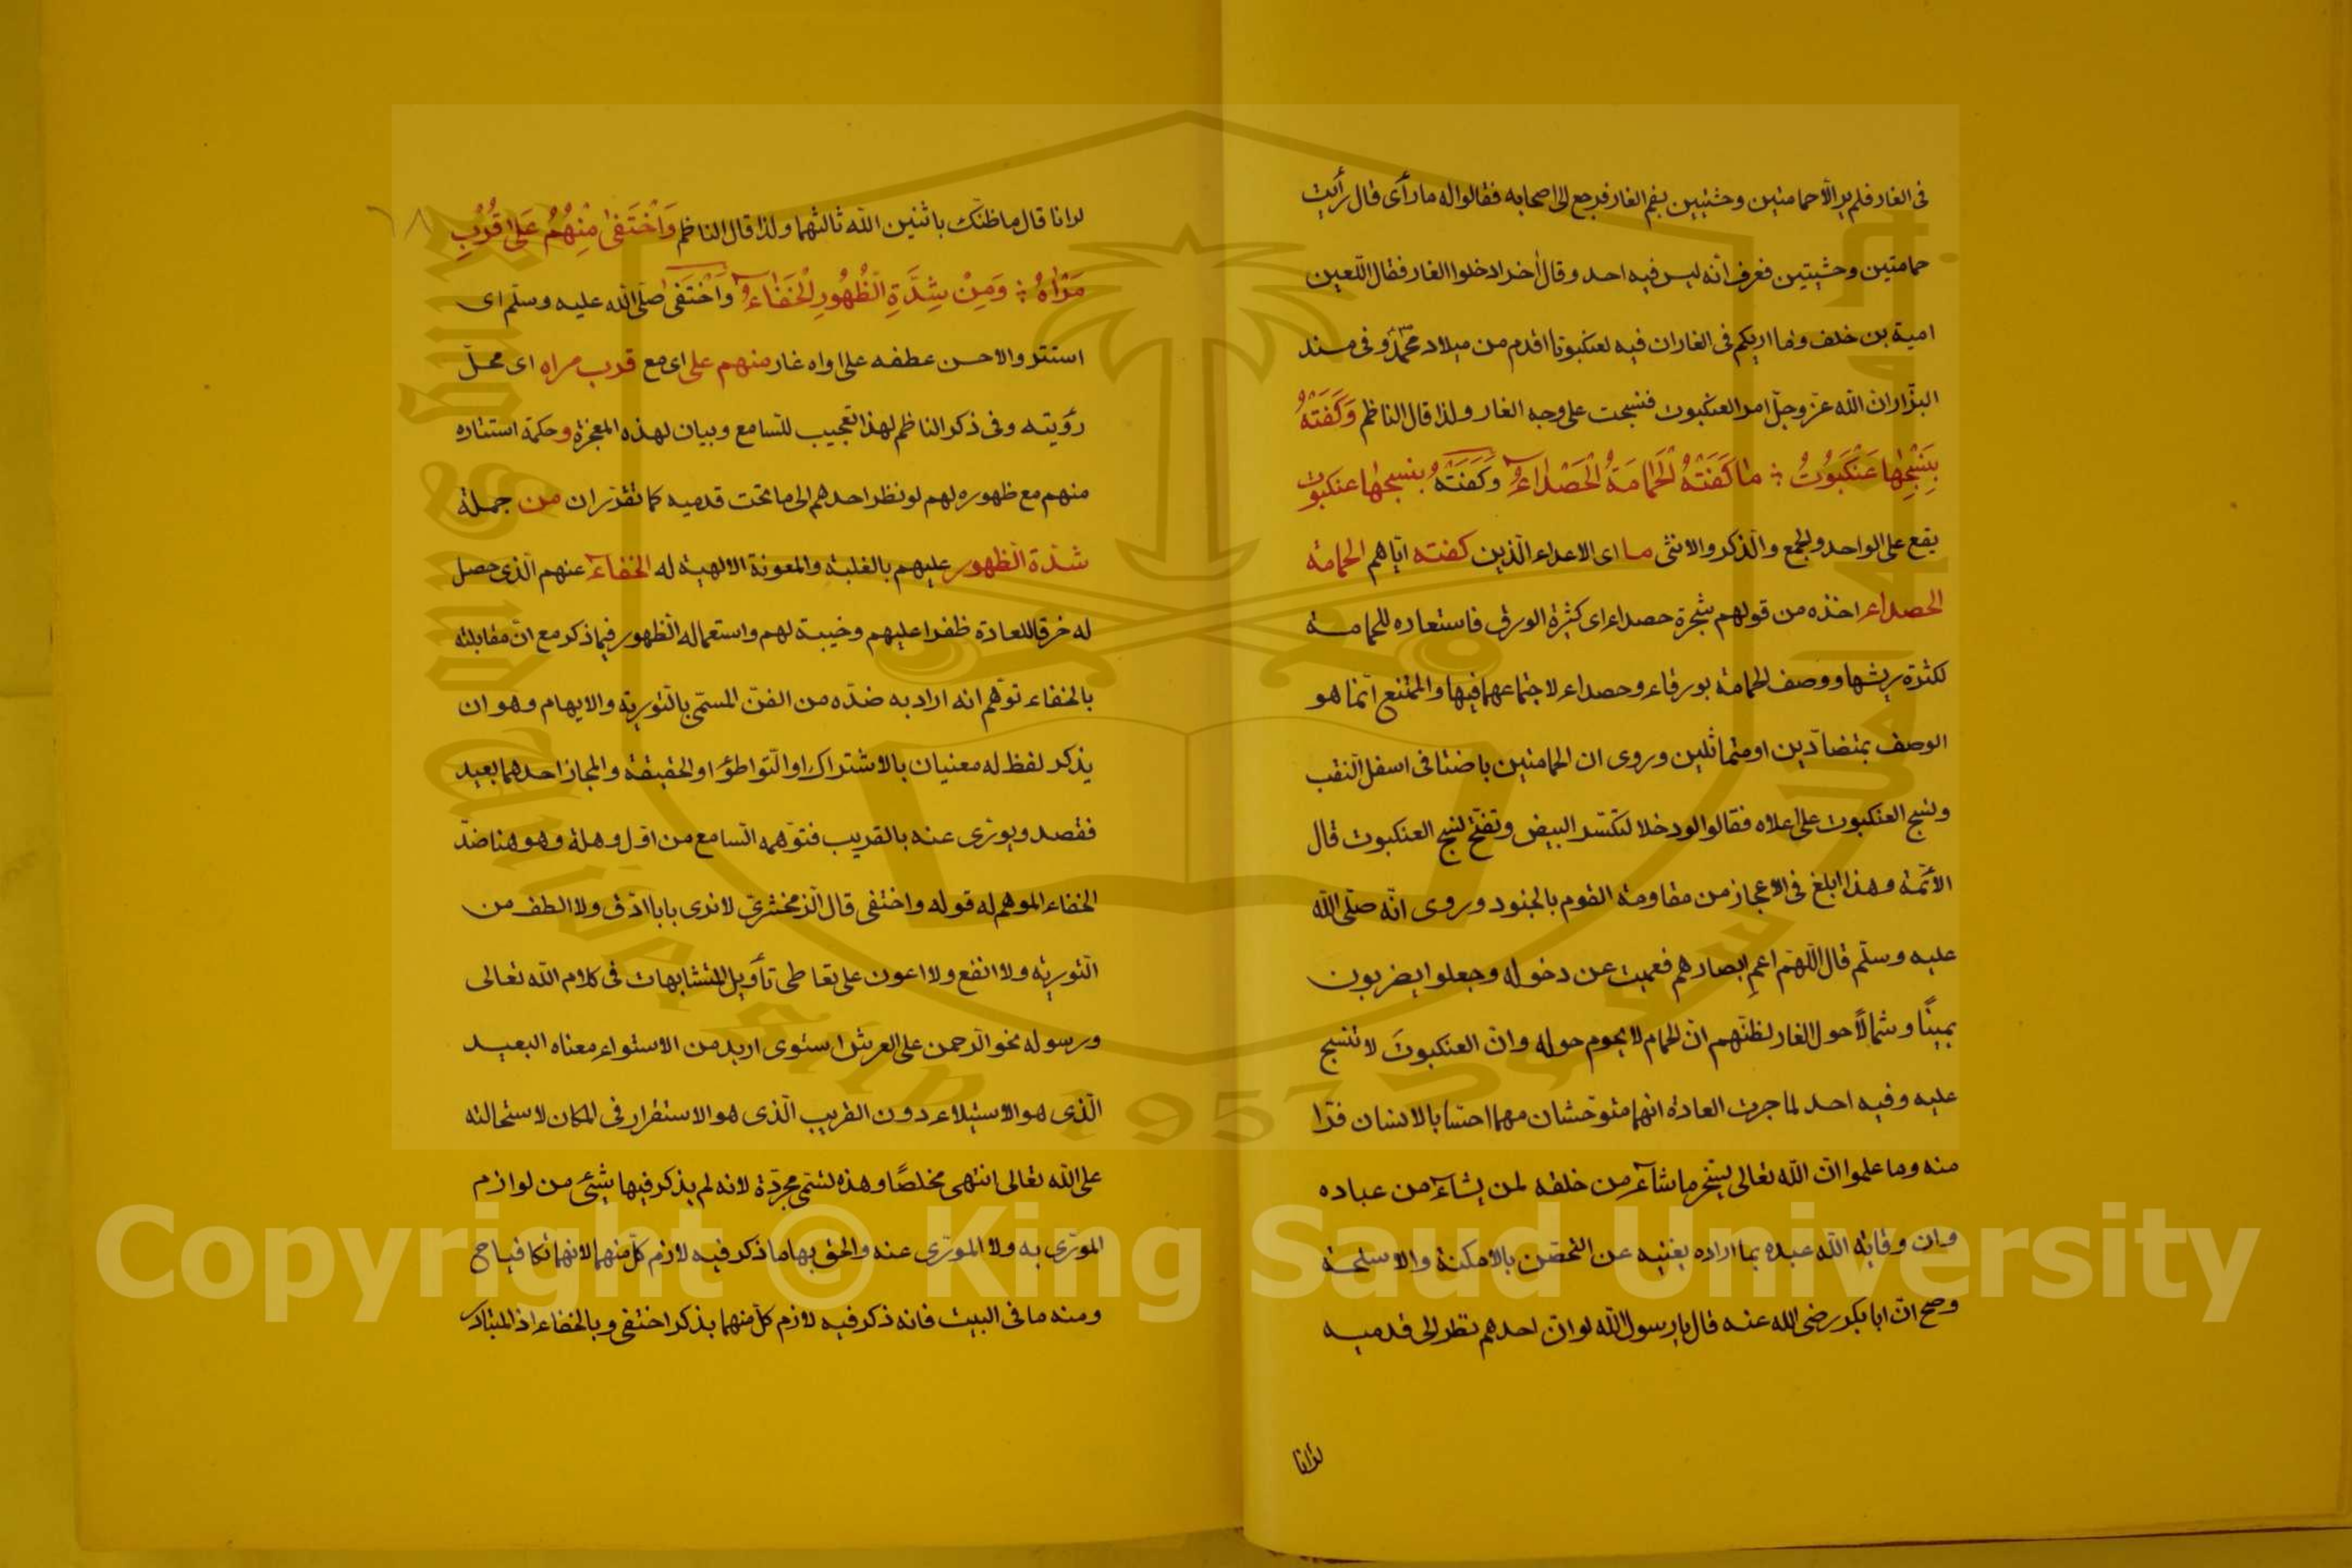 في الغار فلم ير الّا حمامتين وحشيتين بفم الغار فرجع الى اصحابه فقالوا له ما رأى قال رأيت
حمامتين وحشيتين فعرف انّه ليس فيه احد وقال آخر ادخلوا الغار فقال اللّعين
امية بن خلف وما اربكم في الغار ان فيه لعنكبوتا اقدم من ميلاد محمّد وفى مسند
البزّار ان الله عزّ وجلّ امر العنكبوت فنسجت على وجه الغار ولذا قال الناظم وَكَفَتْهُ
بِنَسْجِهَا عَنْكَبُوتُ ؞ مَا كَفَتْهُ الْحَمَامَةُ الْحَصْدَاءُ وَكَفَتْهُ بنسجها عنكبوت
يقع على الواحد والجمع والذّكر والانثى ما اى الاعداء الّذين كفته ايّاهم الحمامة
الحصداء اخذه من قولهم شجرة حصداء اى كثيرة الورق فاستعاره للحمامة
لكثرة ريشها ووصف الحمامة بورقاء وحصداء لاجتماعهما فيها والممتنع انّما هو
الوصف بمتضادّين او متماثلين وروى ان الحمامتين باضتا فى اسفل النّقب
ونسج العنكبوت على اعلاه فقالوا لو دخلا لتكسّر البيض وتفتّح نسج العنكبوت قال
الأئمّة وهذا ابلغ فى الاعجاز من مقاومة القوم بالجنود وروى انّه صلّى الله
عليه وسلّم قال اللّهمّ اعمِ ابصارهم فعميت عن دخوله وجعلوا يضربون
يمينًا وشمالًا حول الغار لظنّهم انّ الحمام لا يحوم حوله وانّ العنكبوتَ لا تنسج
عليه وفيه احد لما جرت العادة انهما متوحّشان مهما احسّا بالانسان فرّا
منه وما علموا انّ الله تعالى يسخّر ما شآء من خلقه لمن يشآء من عباده
وان وقاية الله عبده بما اراده يغنيه عن التحصّن بالامكنة والاسلحة
وصح انّ ابا بكر رضى الله عنه قال يا رسول الله لو انّ احدهم نظر الى قدميه
لرآنا
٦٨
لرانا قال ما ظنّك باثنين الله ثالثهما ولذا قال الناظم وَاخْتَفَى مِنْهُمُ عَلَى قُرْبِ
مَرْاهُ ؞ وَمِنْ شِدَّةِ الظُّهُورِ الْخَفَاءُ وَاخْتَفَى صلّى الله عليه وسلّم اى
استتر والاحسن عطفه على اواه غار منهم على اى مع قرب مراه اى محلّ
رؤيته وفى ذكر الناظم لهذا تعجيب للسّامع وبيان لهذه المعجزة وحكمة استتاره
منهم مع ظهوره لهم لو نظر احدهم الى ما تحت قدميه كما تقرّر ان من جملة
شدّة الظهور عليهم بالغلبة والمعونة الالهية له الخفآء عنهم الّذى حصل
له خرقا للعادة ظفرا عليهم وخيبة لهم واستعماله الظهور فيما ذكر مع انّ مقابلته
بالخفاء توهّم انه اراد به ضدّه من الفنّ المسمّى بالتّورية والايهام وهو ان
يذكر لفظ له معنيان بالاشتراك او التّواطؤ او الحقيقة والمجاز احدهما بعيد
فقصد ويورّى عنه بالقريب فتوّهمه السّامع من اوّل وهلة وهو هنا ضدّ
الخفاء الموهم له قوله واختفى قال الزّمخشرىّ لا نرى بابا ادّق ولا الطف من
التّورية ولا انفع ولا اعون على تعاطى تأويل المتشابهات فى كلام الله تعالى
ورسوله نحو الرّحمن على العرش استوى اريد من الاستواء معناه البعيد
الّذى هو الاستيلاء دون القريب الّذى هو الاستقرار فى المكان لاستحالته
على الله تعالى انتهى مخلصًا وهذه تسمّى مجرّدة لانه لم يذكر فيها شئ من لوازم
المورّى به ولا المورّى عنه والحق بها ما ذكر فيه لازم كلّ منهما لانهما تكافيا صح
ومنه ما فى البيت فانه ذكر فيه لازم كلّ منهما بذكر اختفى وبالخفاء اذ المتبادر
Copyright © King Saud University
King Saud University 1957